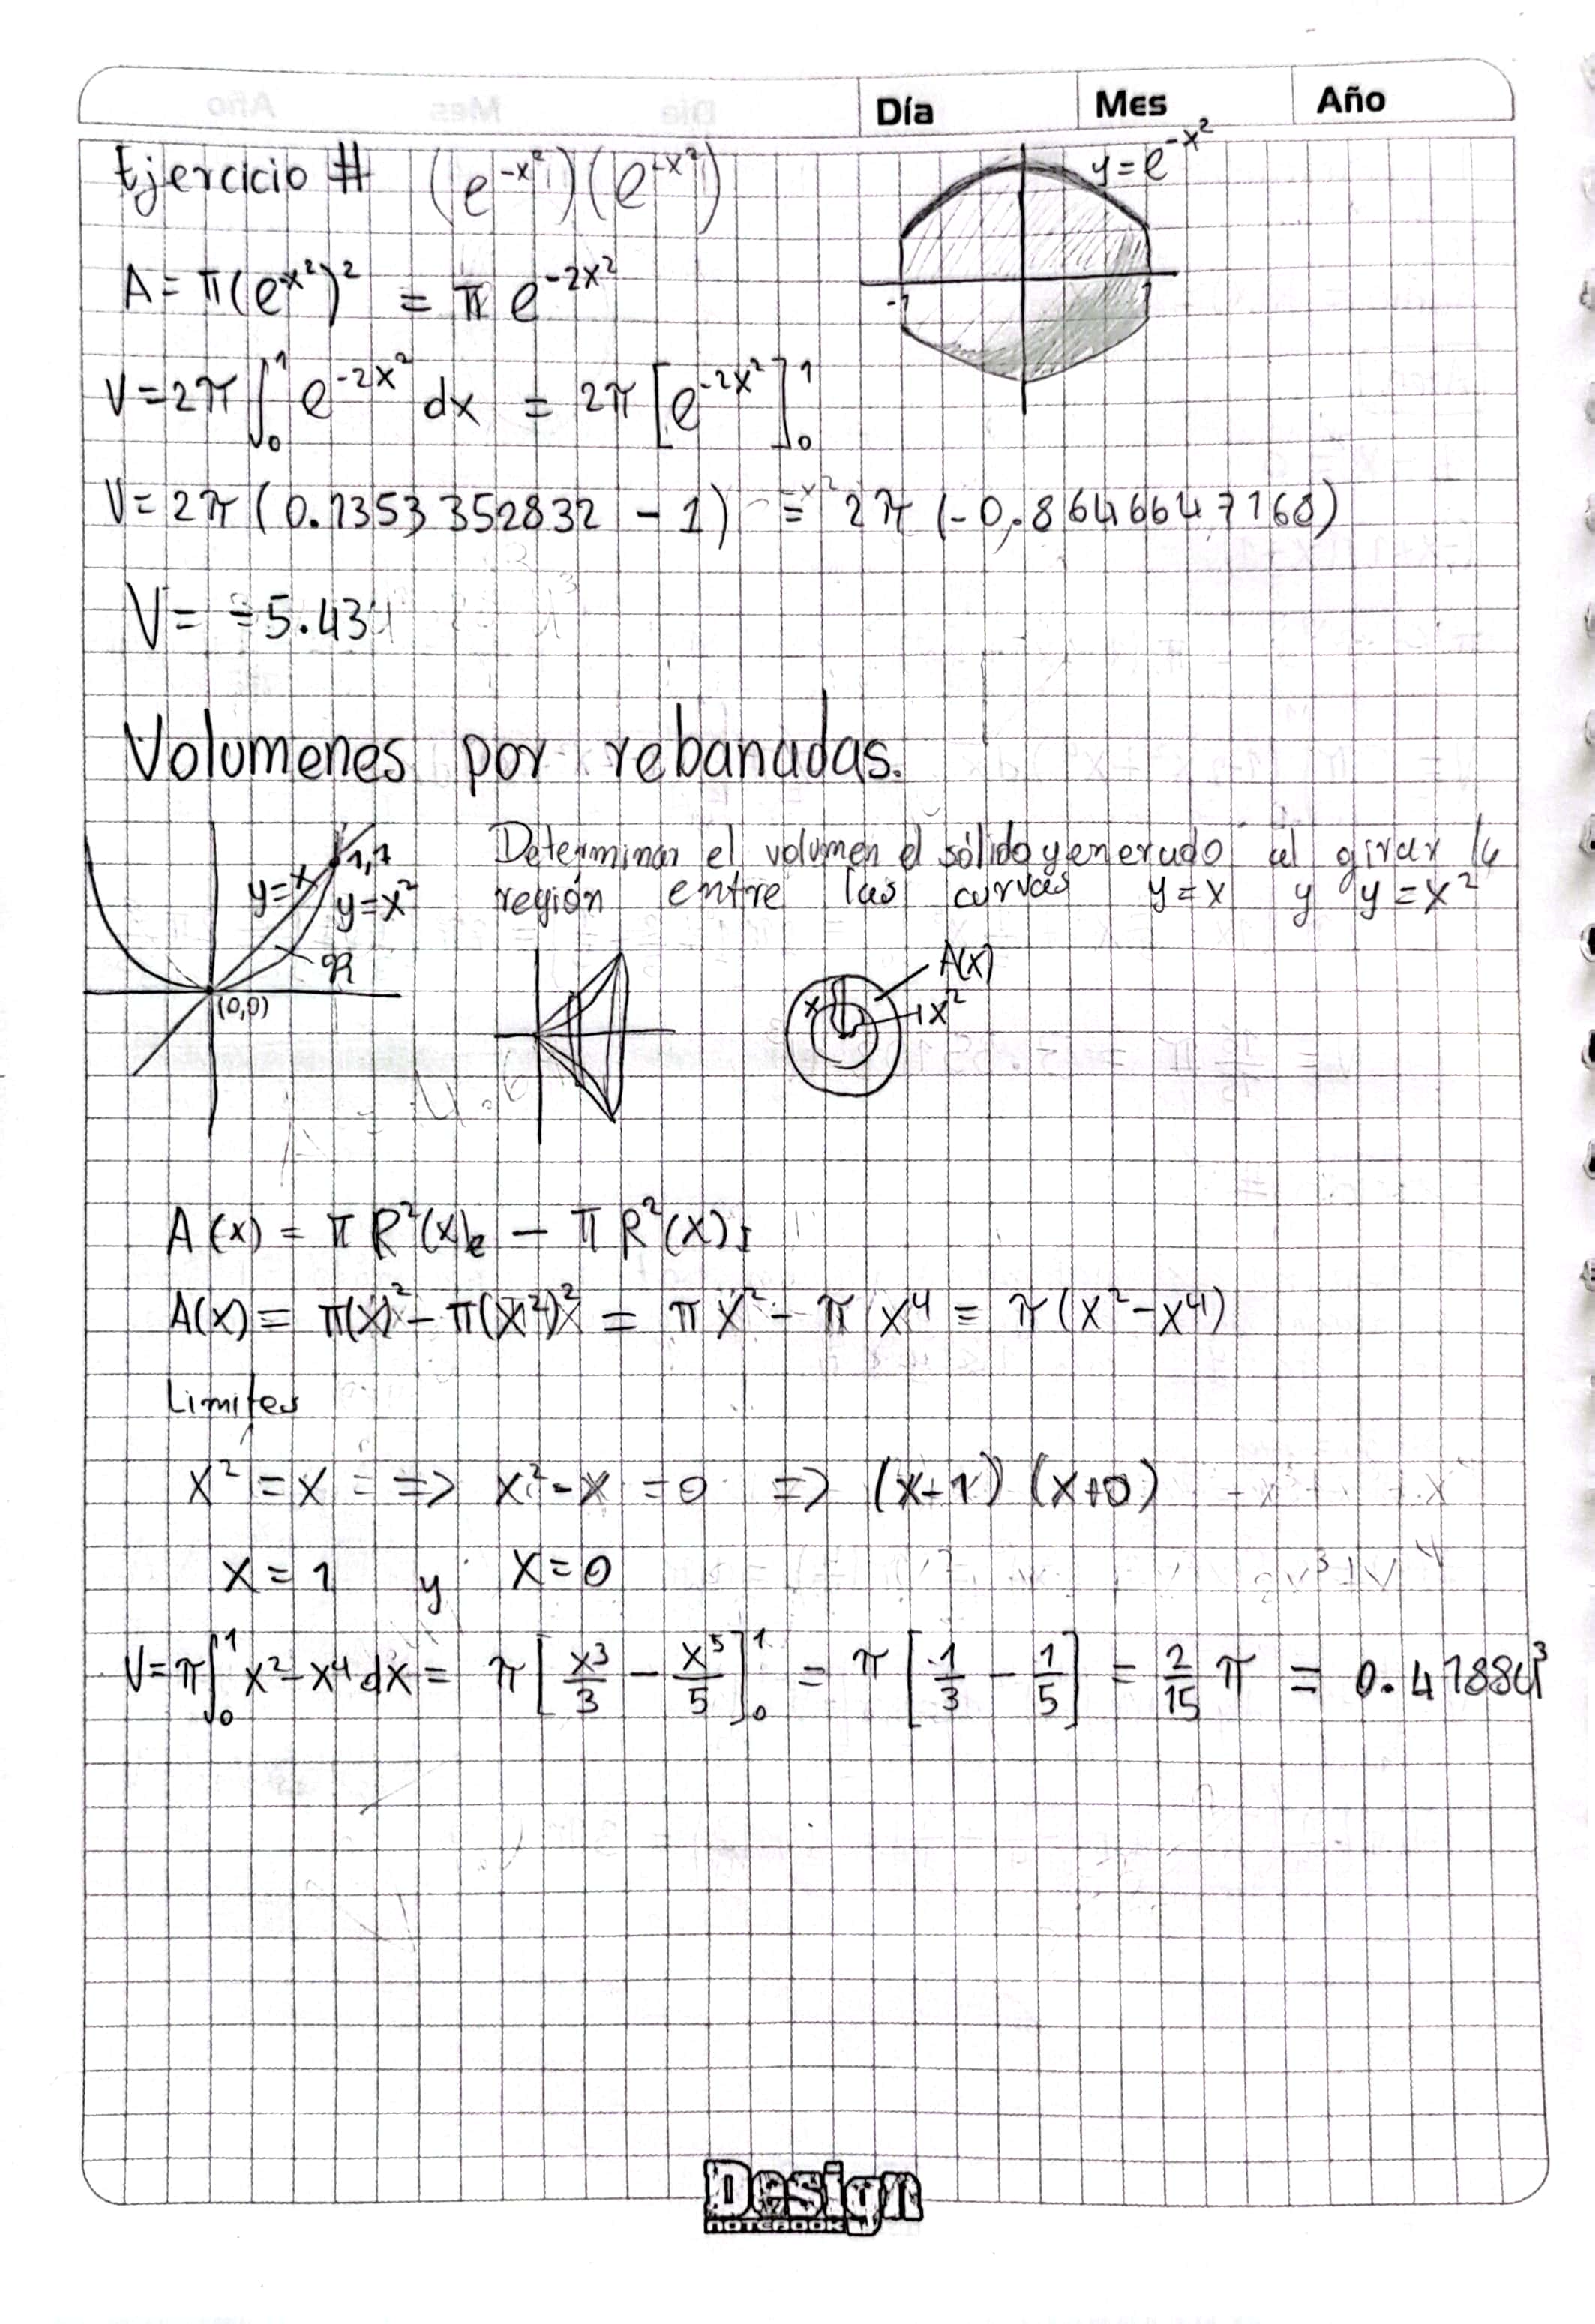 Día Mes Año
Ejercicio # (e^-x²)(e^-x²)
y=e^-x²
A = π(e^x²)² = π e^-2x²
-1 1
V=2π ∫₀¹ e^-2x² dx = 2π [e^-2x²]₀¹
V=2π (0.1353352832 - 1) = 2π (-0.8646647168)
V= -5.43
Volumenes por rebanadas.
Determinar el volumen d sólido generado al girar la
región entre las curvas y=x y y=x²
1,1
y=x
y=x²
R
(0,0)
A(x)
x x²
A(x) = π R²(x)e - π R²(x)i
A(x) = π(x)² - π(x²)² = π x² - π x⁴ = π(x²-x⁴)
Limites
x² = x => x²-x =0 => (x-1) (x+0)
x=1 y x=0
V=π∫₀¹ x²-x⁴ dx = π [x³/3 - x⁵/5]₀¹ = π [1/3 - 1/5] = 2/15 π = 0.4188u³
Design
NOTEBOOK